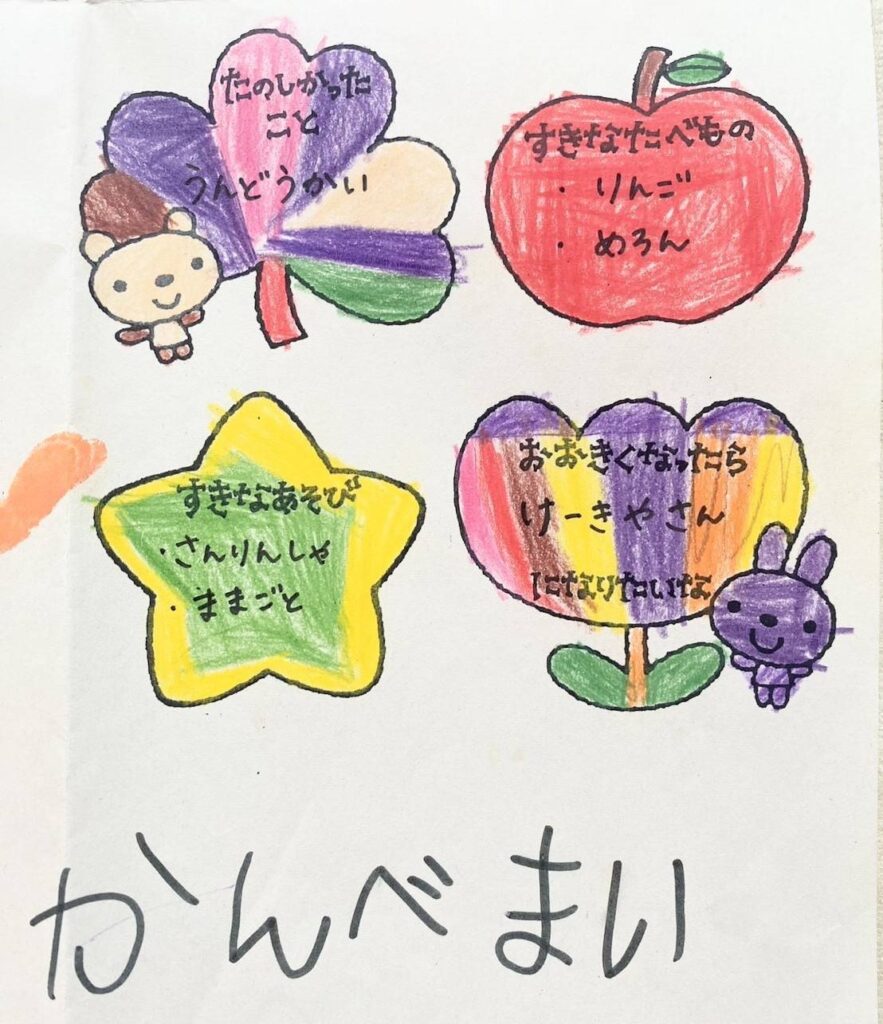 たのしかった
こと
うんどうかい
すきなたべもの
・りんご
・めろん
すきなあそび
・さんりんしゃ
・ままごと
おおきくなったら
けーきやさん
になりたいな
かんべまい